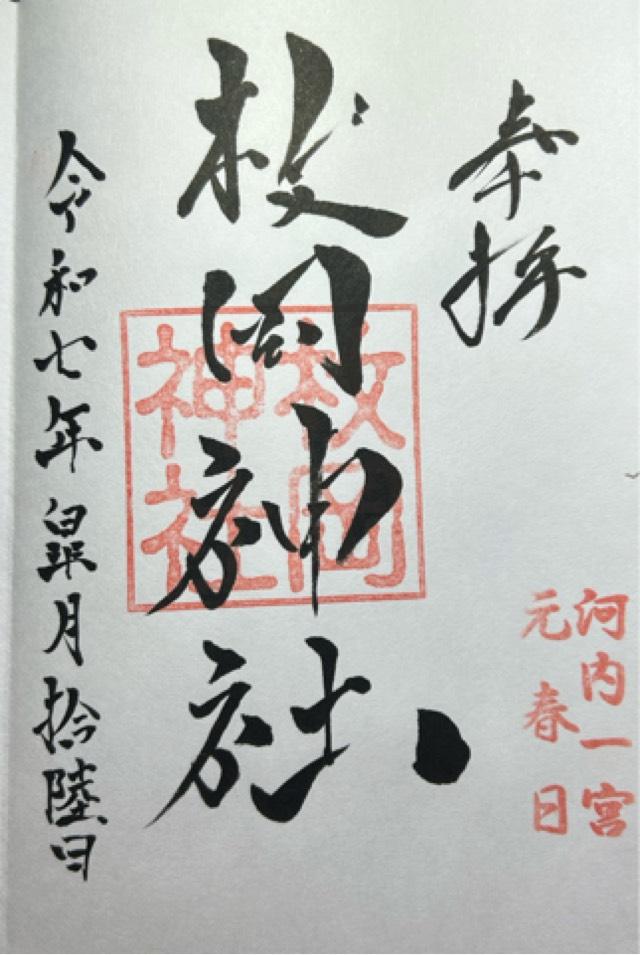 奉拝
河内一宮
元春日
枚岡神社
枚岡
神社
令和七年皐月拾陸日